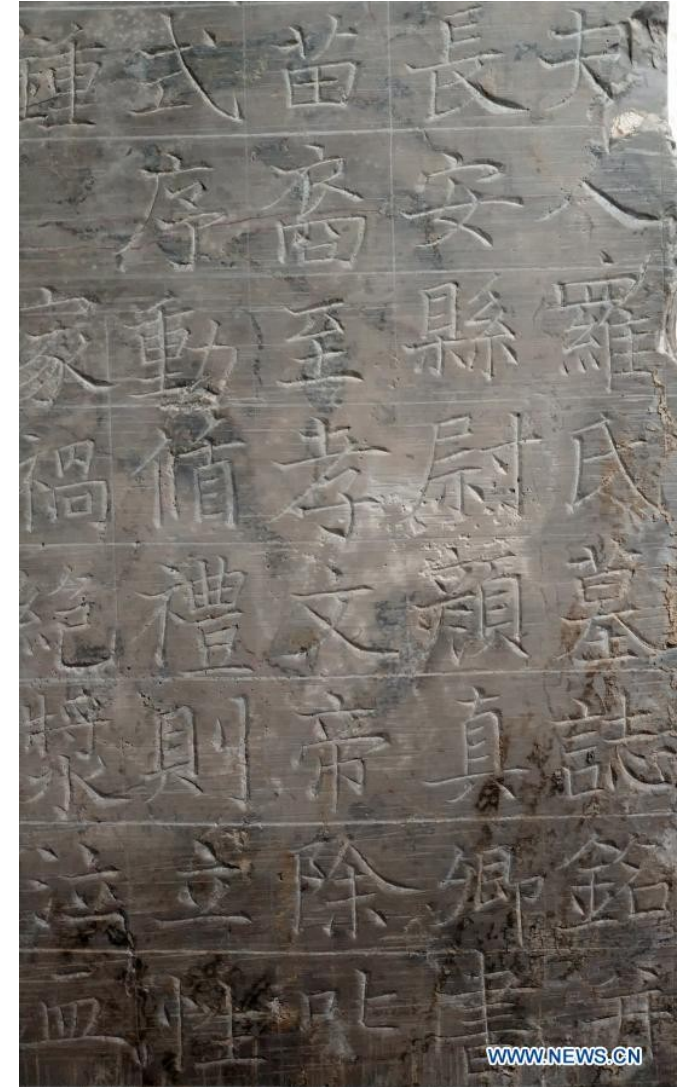 夫人羅氏墓誌銘并
長安縣尉顏真卿書
苗裔至孝文帝除叱
式序動偱禮則立性
家禍絕漿泣血
WWW.NEWS.CN